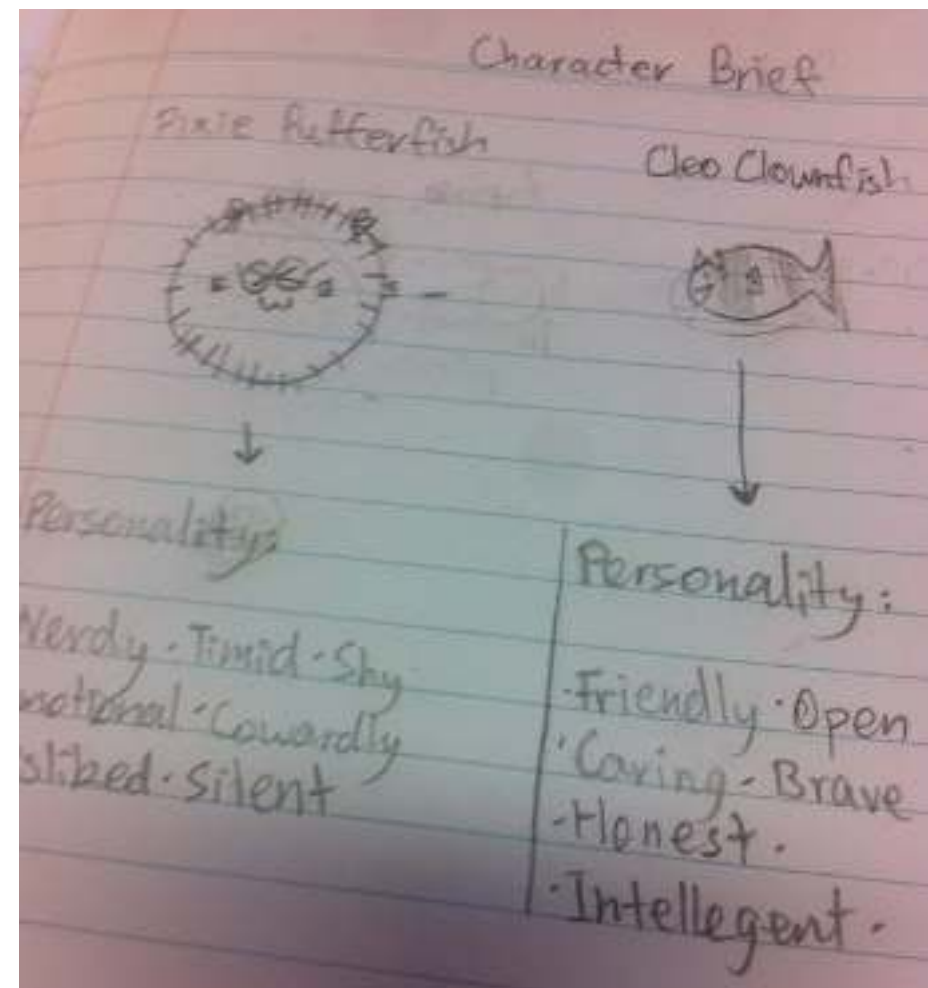 Character Brief
Pixie Pufferfish
Cleo Clownfish
Personality:
Nerdy · Timid · Shy
motional · Cowardly
slibed · Silent
Personality:
· Friendly · Open
· Caring - Brave
- Honest .
· Intellegent .